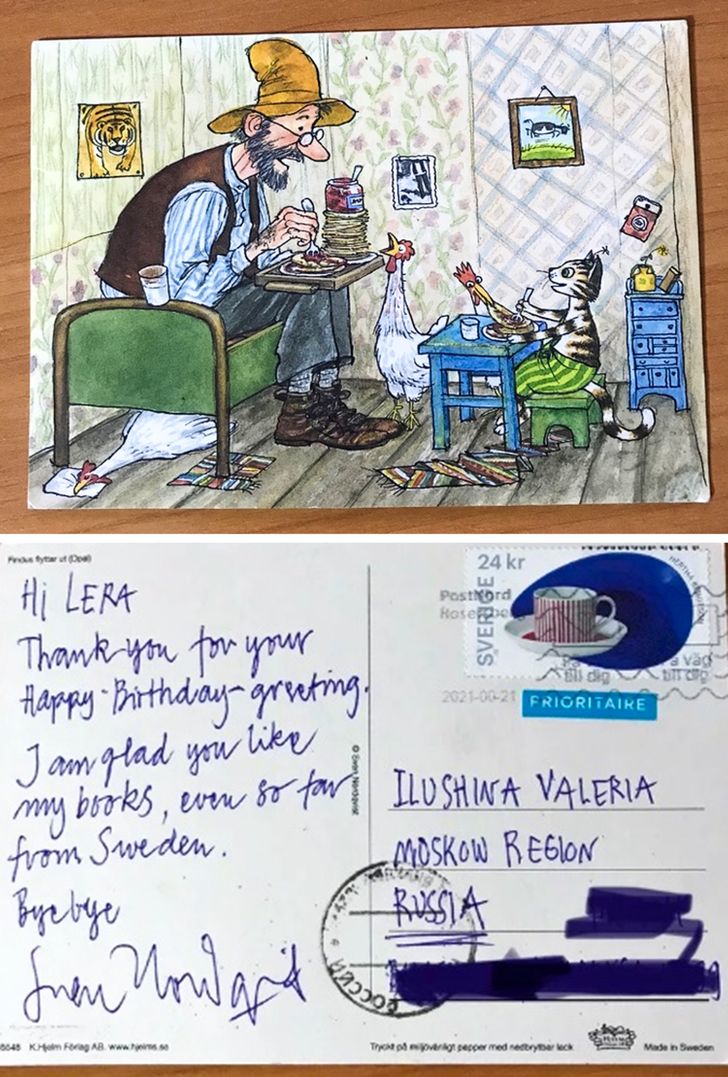 Findus flyttar ut (Opal)
Hi LERA
Thank you for your
Happy-Birthday-greeting.
I am glad you like
my books, even so far
from Sweden.
Bye bye
Sven Nordqvist
© Sven Nordqvist
24 kr
SVERIGE
2021-
PRIORITAIRE
ILUSHINA VALERIA
MOSKOW REGION
RUSSIA
РОССИЯ
K.Hjelm Förlag AB. www.hjelms.se
Tryckt på miljövänligt papper med nedbrytbar lack
Made in Sweden